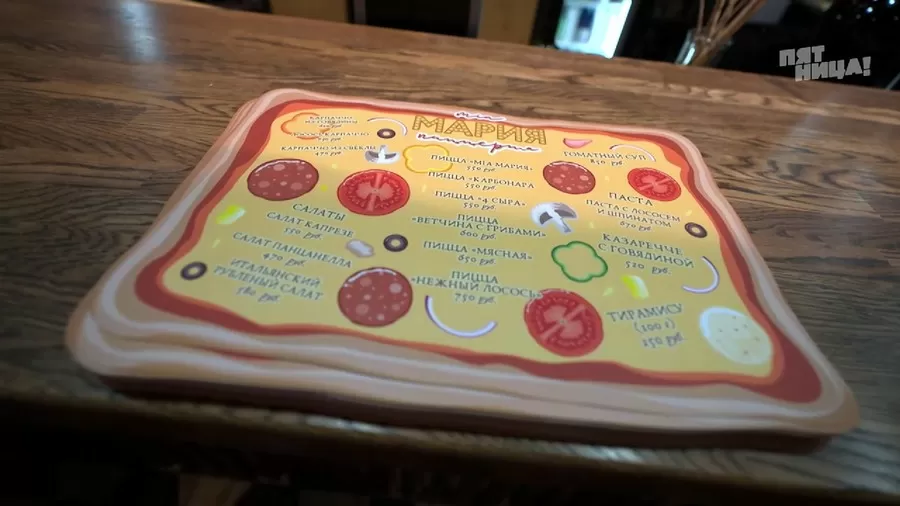 ПЯТ
НИЦА!
mia
МАРИЯ
пиццерия
КАРПАЧЧО
ИЗ ГОВЯДИНЫ
ЛОСОСЬ КАРПАЧЧО
КАРПАЧЧО ИЗ СВЁКЛЫ
470 руб.
САЛАТЫ
САЛАТ КАПРЕЗЕ
550 руб.
САЛАТ ПАНЦАНЕЛЛА
470 руб.
ИТАЛЬЯНСКИЙ
РУБЛЕНЫЙ САЛАТ
580 руб.
ПИЦЦА «MIA МАРИЯ»
550 руб.
ПИЦЦА «КАРБОНАРА
550 руб.
ПИЦЦА «4 СЫРА»
550 руб.
ПИЦЦА
«ВЕТЧИНА С ГРИБАМИ»
600 руб.
ПИЦЦА «МЯСНАЯ»
650 руб.
ПИЦЦА
«НЕЖНЫЙ ЛОСОСЬ»
750 руб.
ТОМАТНЫЙ СУП
850 руб.
ПАСТА
ПАСТА С ЛОСОСЕМ
И ШПИНАТОМ
670 руб.
КАЗАРЕЧЧЕ
С ГОВЯДИНОЙ
520 руб.
ТИРАМИСУ
(100 г)
250 руб.